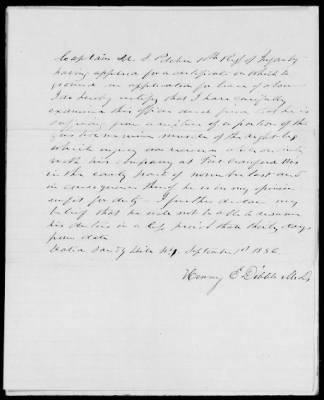 Captain M. S. Pitcher 10th Regt of Infantry
having applied for a certificate on which to
ground an application for leave of absence
I do hereby certify that I have carefully
examined this officer and find that he is
suffering from a rupture of a portion of the
muscle of the right leg
which injury was received while on duty
with his company at Fort Crawford Wis
in the early part of november last and
in consequence thereof he is in my opinion
unfit for duty - I further declare my
belief that he will not be able to resume
his duties in a less period than thirty days
from date
Dated Sandy Hill N.Y. September 1st 1856
Henry E Dibble M.D.